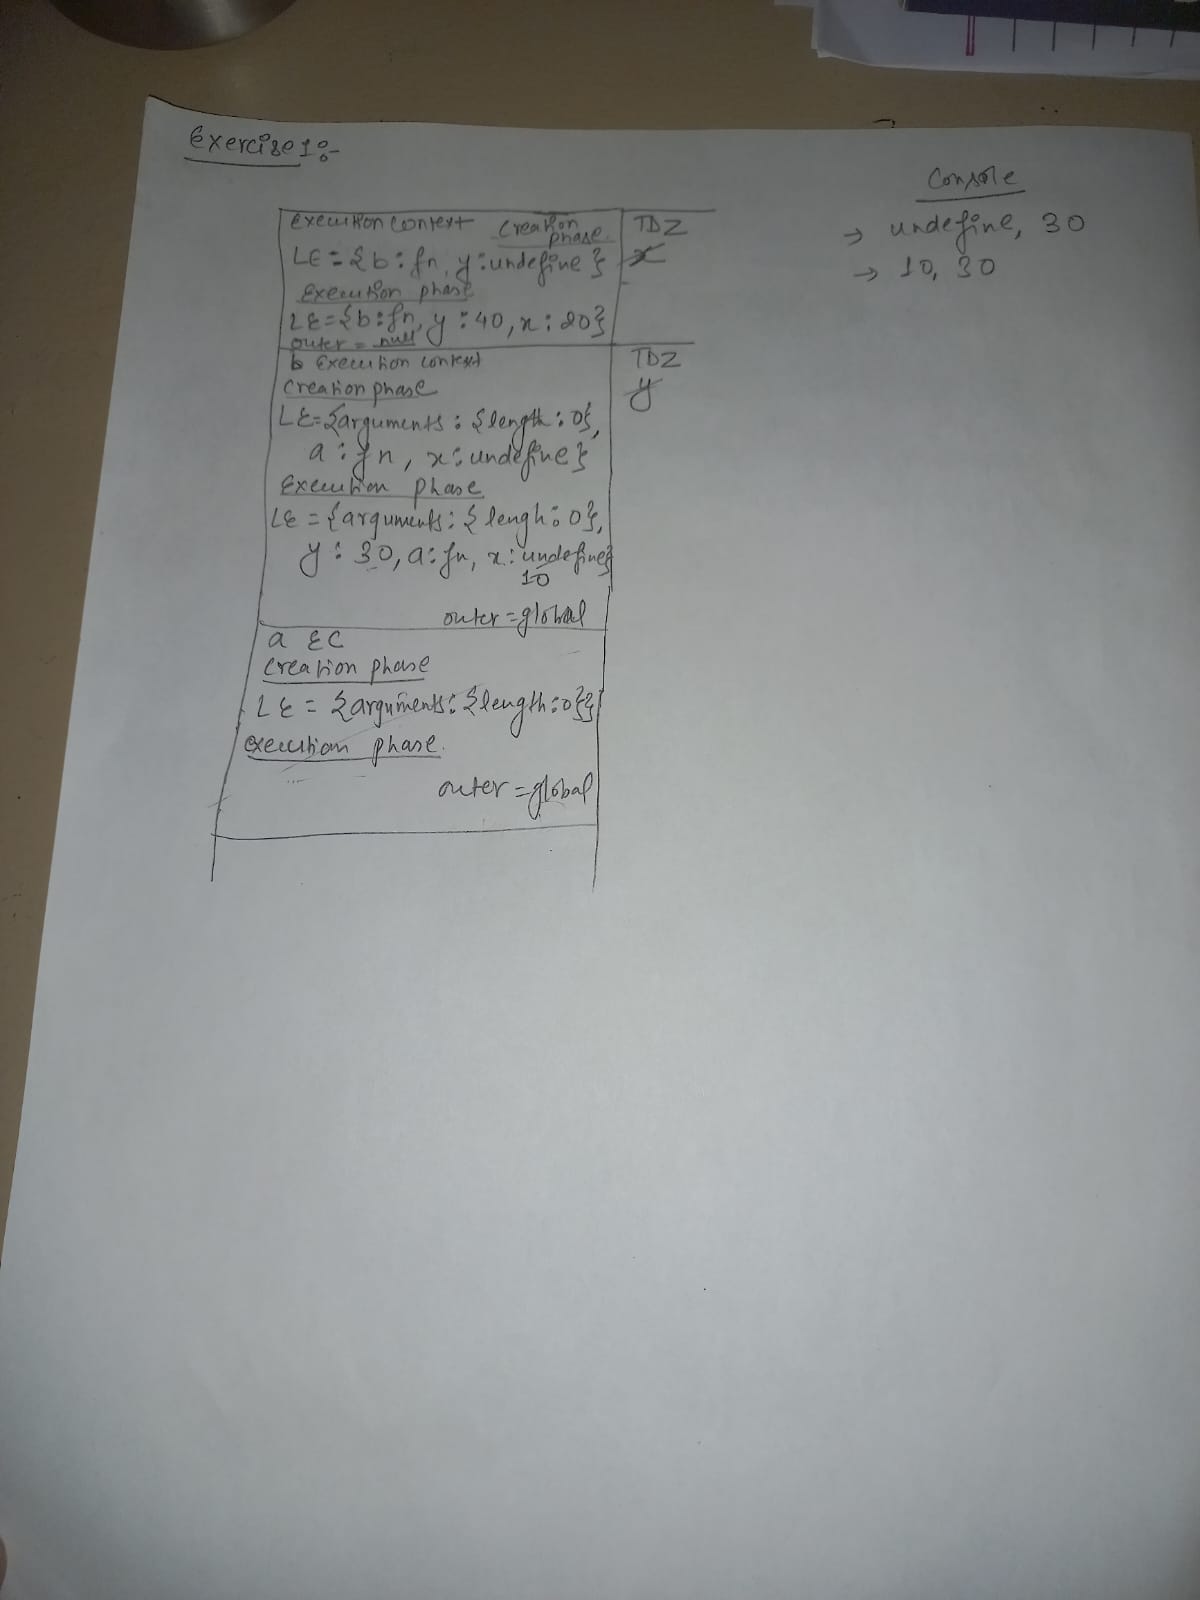 Exercise 1:-
Console
→ undefine, 30
→ 10, 30
Execution Context Creation phase. TDZ
LE = {b : fn, y : undefine } x
Execution phase
LE = {b : fn, y : 40, x : 20}
outer = null
b Execution context TDZ
Creation phase y
LE = {arguments : {length : 0},
a : fn, x : undefine }
Execution phase
LE = {arguments : { lengh : 0},
y : 30, a : fn, x : undefine}
10
outer = global
a EC
Creation phase
LE = {arguments : {length : 0}}
execution phase.
outer = global